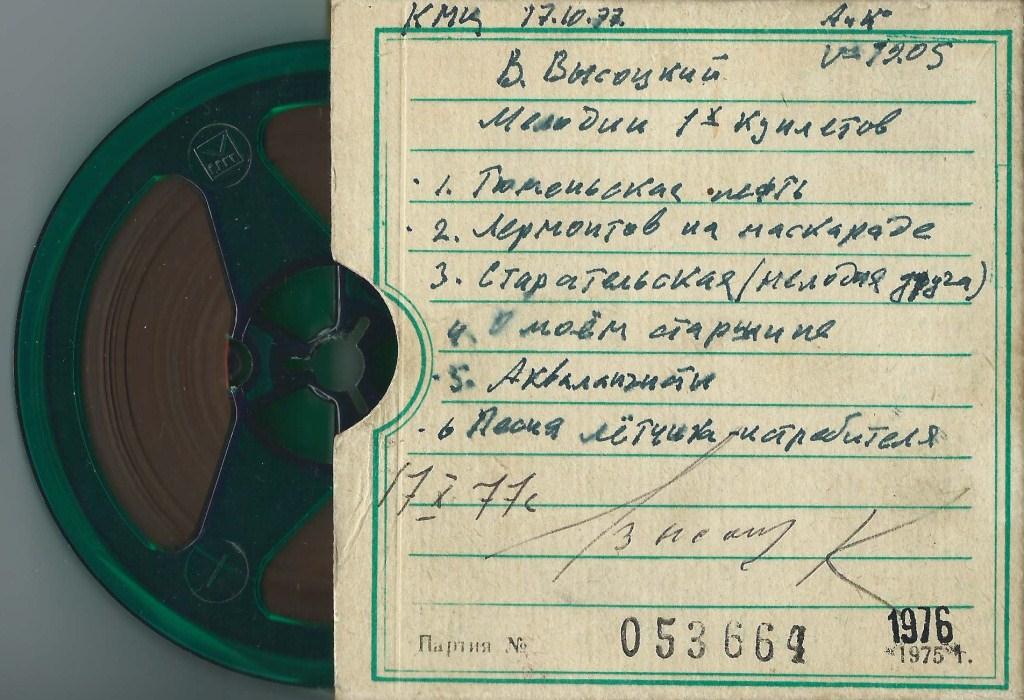 КМЦ 17.10.77 АиК°
V=19.05
В. Высоцкий
Мелодии 1х куплетов
1. Тюменьская нефть
2. Лермонтов на маскараде
3. Старательская (мелодия друга)
4. О моём старшине
5. Аквалангисты
6 Песня лётчика истребителя
17 X 77г
К
Партия № 053664 1976
"1975" г.